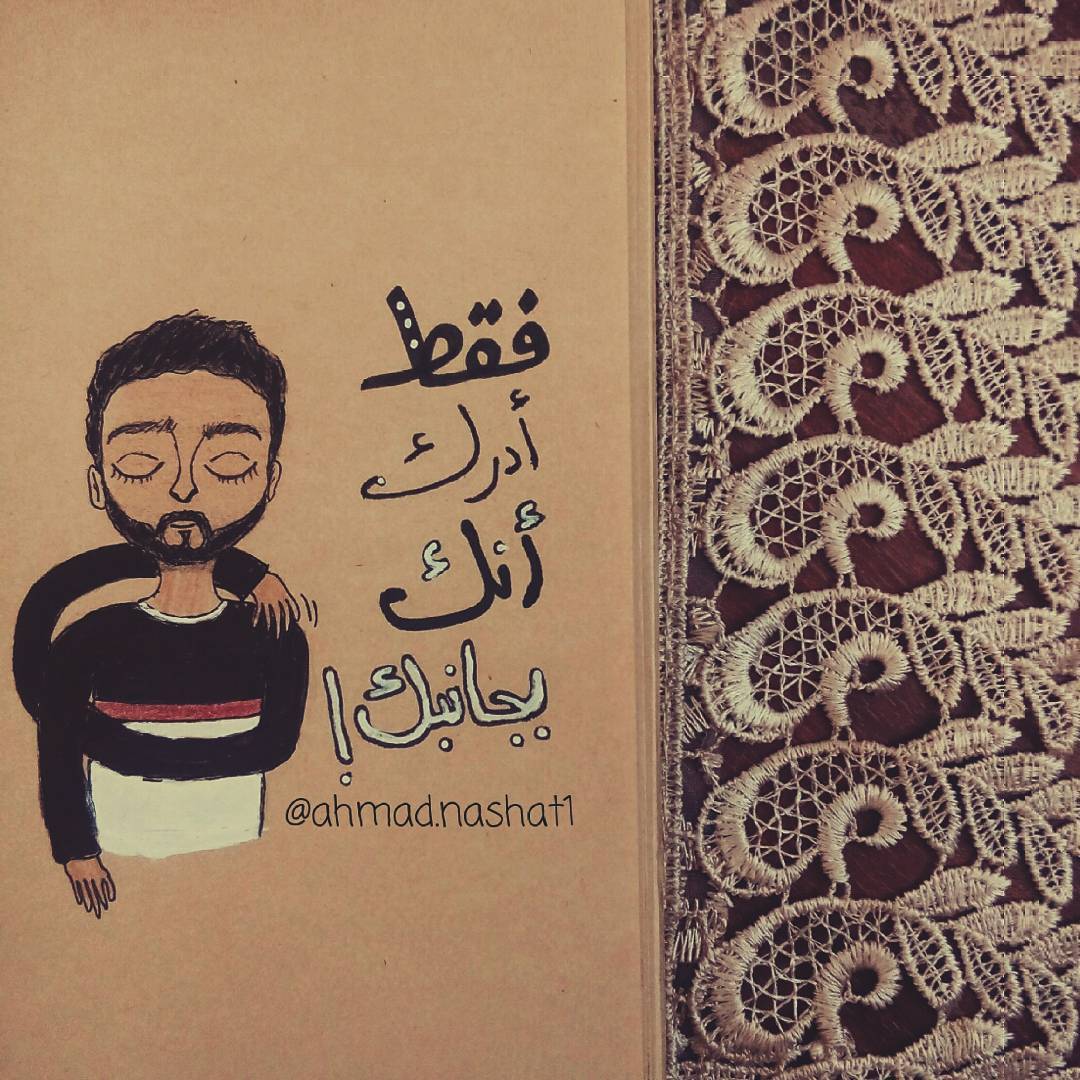 فقط
أدرك
أنك
بجانبك!
@ahmad.nashat1